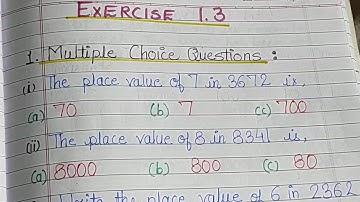 EXERCISE 1.3
1. Multiple Choice Questions :
(i) The place value of 7 in 3672 is,
(a) 70 (b) 7 (c) 700
(ii) The place value of 8 in 8341 is,
(a) 8000 (b) 800 (c) 80
the place value of 6 in 2362